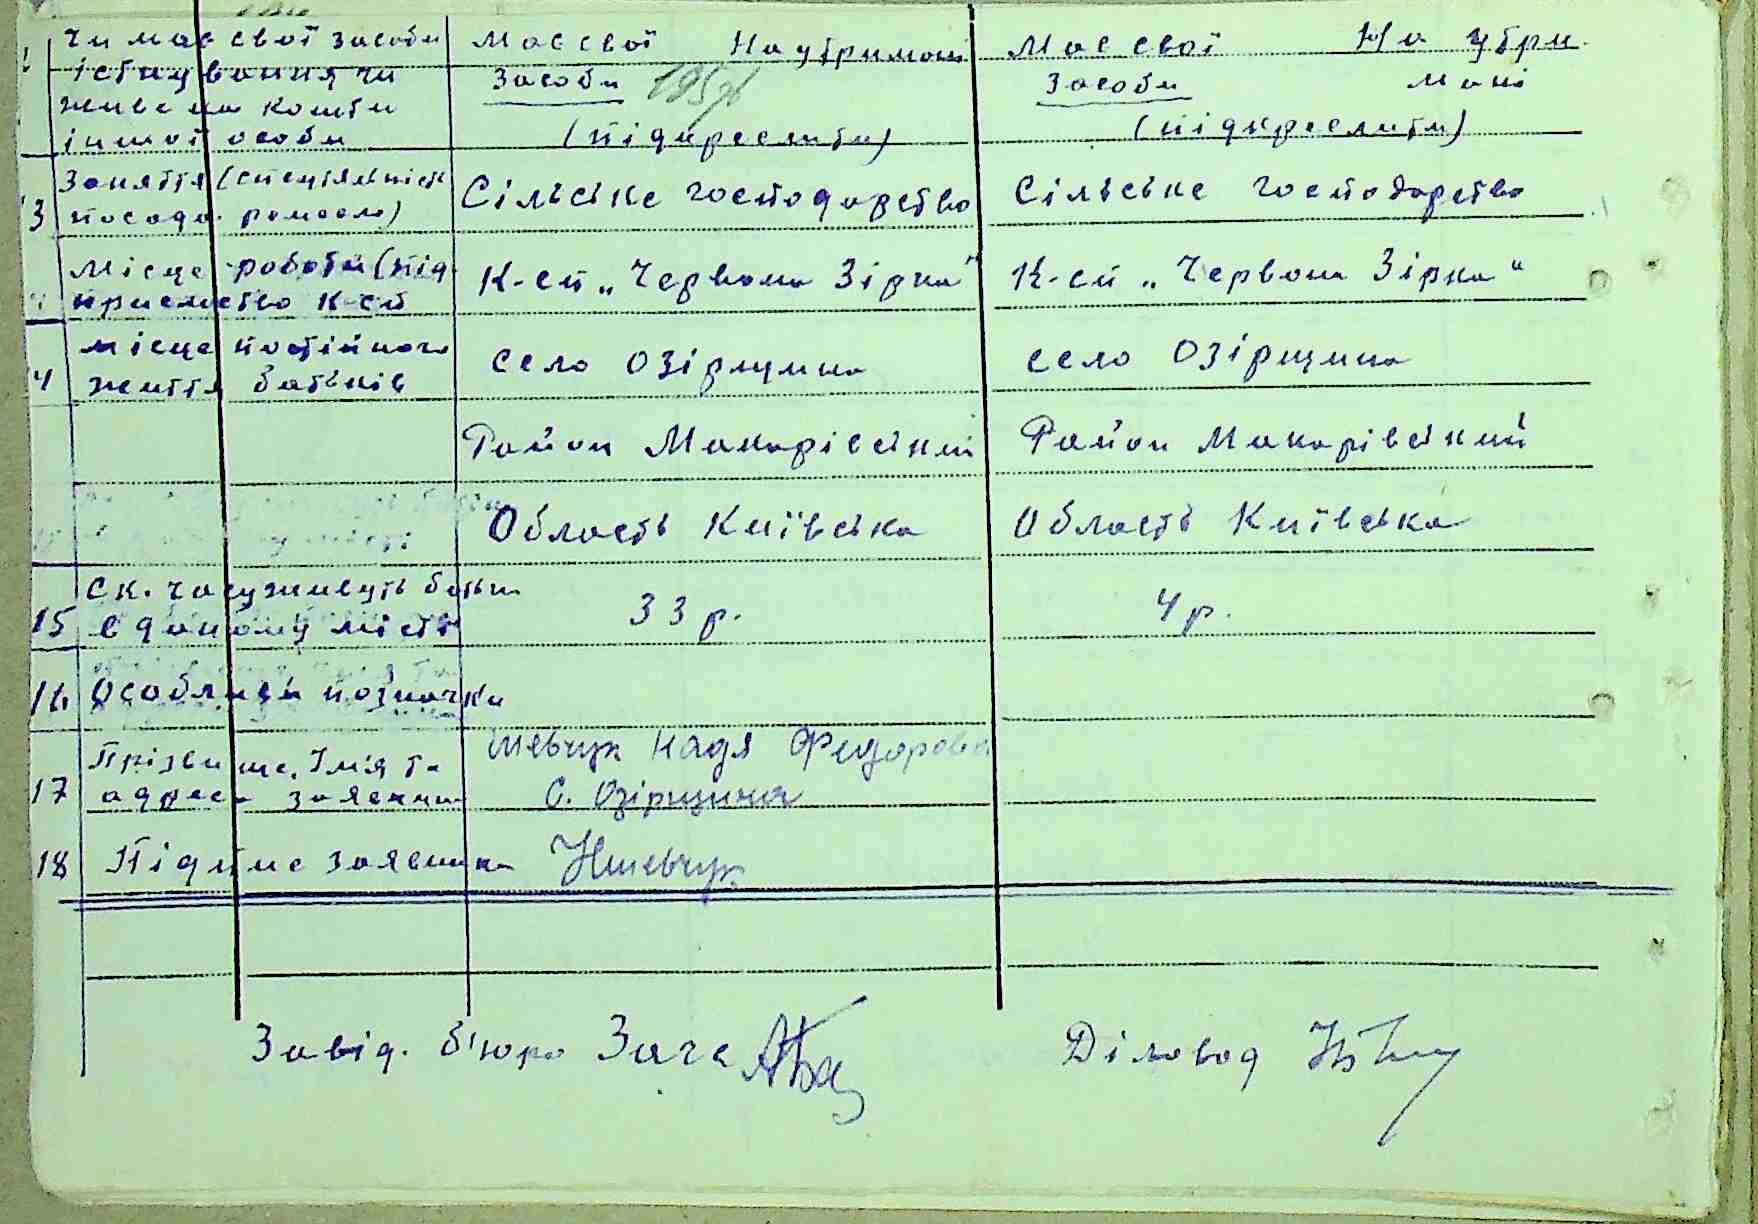 Чи має свої засоби | Має свої На утриман | Має свої На утри
існування чи | засоби | засоби мані
живе на кошти
іншої особи | (підкреслити) | (підкреслити)
13 Заняття (спеціяльність | Сільське господарство | Сільське господарство
посада. ремесло)
Місце роботи (під | К-сп „Червона Зірка" | К-сп „Червона Зірка"
приємство К-сп
14 місце постійного | село Озірщина | село Озірщина
життя батьків
Район Макарівський | Район Макарівський
Область Київська | Область Київська
Ск. часу живуть батьки | 33 р. | 4 р.
15 в даному місті
16 Особливі позначки
17 Прізвище, Ім'я та | Шевчук Надя Федорова
адреса заявника | С. Озірщина
18 Підпис заявника | НШевчук
Завід. б'юро Загс | Діловод